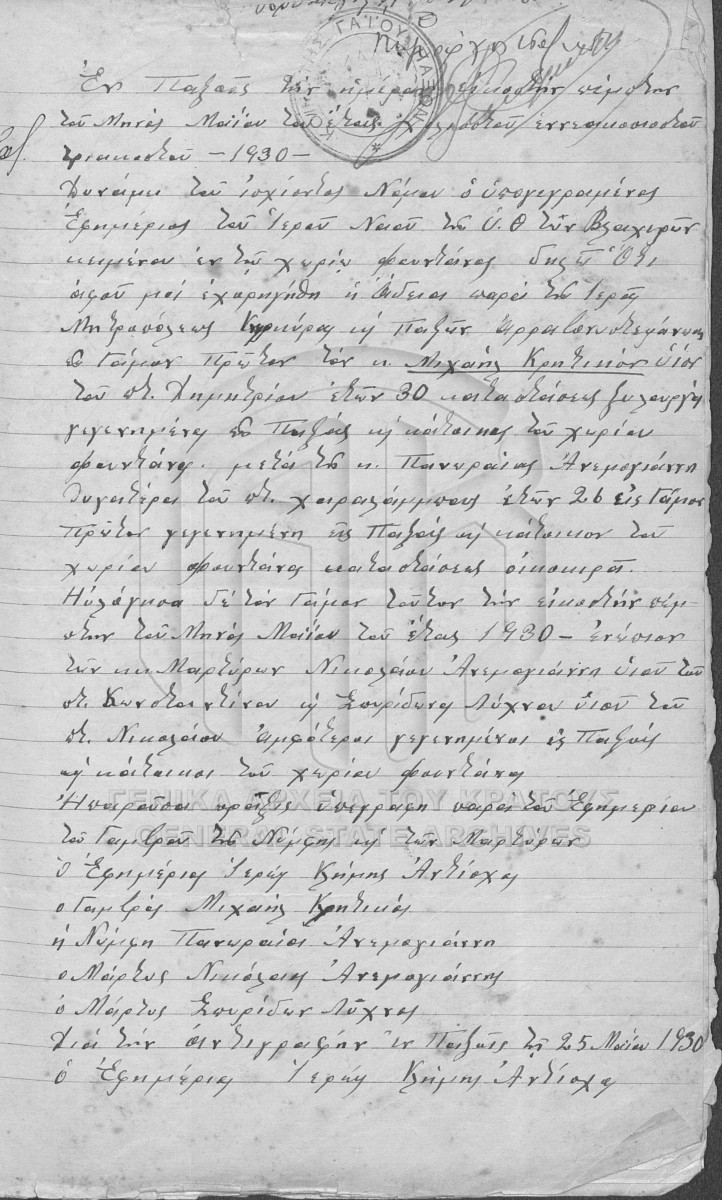 Ἐν Παξοῖς τὴν ἡμέραν εἰκοστὴν πέμπτην
τοῦ Μηνός Μαΐου τοῦ ἔτους χιλιοστοῦ ἐννεακοσιοστοῦ
τριακοστοῦ -1930-
Δυνάμει τοῦ ἰσχύοντος Νόμου ὁ ὑπογεγραμένος
Ἐφημέριος τοῦ Ἱεροῦ Ναοῦ τῆς Ὑ. Θ τῶν Βλαχερνῶν
κειμένου ἐν τῷ χωρίῳ Φουντάνας Ὅτι
ἀφοῦ μοί ἐχορηγήθη ἡ Ἄδεια παρά τῆς Ἱερᾶς
Μητροπόλεως Κερκύρας κ Παξῶν
Γάμον Πρῶτον τόν κ. Μιχαήλ Κρητικόν Υἱόν
τοῦ ποτ. Δημητρίου ἐτῶν 30 καταστάσεως ξυλουργός
γεγενημένος εἰς Παξούς κ κάτοικος τοῦ χωρίου
Φουντάνα. μετά τῆς κ. Πανωραίας Ἀνεμογιάννη
Θυγατέρα τοῦ ποτ. χαραλάμπους ἐτῶν 26 εἰς Γάμον
Πρῶτον γεγενημένη εἰς Παξούς κ κάτοικον τοῦ
χωρίου Φουντάνας καταστάσεως οἰκοκυρά.
Ηὐλόγησα δέ τόν Γάμον τοῦτον τὴν εἰκοστήν πέμ-
πτην τοῦ Μηνός Μαΐου τοῦ ἔτους 1930- ἐνώπιον
τῶν κκ Μαρτύρων Νικολάου Ἀνεμογιάννη υἱοῦ τοῦ
ποτ. Κωνσταντίνου κ Σπυρίδωνα Λύχνου υἱοῦ τοῦ
ποτ. Νικολάου Ἀμφότεροι γεγενημένοι εἰς Παξούς
κ κάτοικοι τοῦ χωρίου Φουντάνα
Ἡ παροῦσα πρᾶξις ὑπεγράφη παρά τοῦ Ἐφημερίου
τοῦ Γαμβροῦ τῆς Νύμφης κ τῶν Μαρτύρων
Ὁ Ἐφημέριος Ἱερεύς Κλήμης Ἀντίοχος
ὁ Γαμβρός Μιχαήλ Κρητικός
ἡ Νύμφη Πανωραία Ἀνεμογιάννη
ὁ Μάρτυς Νικόλαος Ἀνεμογιάννης
ὁ Μάρτυς Σπυρίδων Λύχνος
Διά τήν ἀντιγραφήν Ἐν Παξοῖς τῇ 25 Μαΐου 1930
ὁ Ἐφημέριος Ἱερεύς Κλήμης Ἀντίοχος
ΓΕΝΙΚΑ ΑΡΧΕΙΑ ΤΟΥ ΚΡΑΤΟΥΣ
GENERAL STATE ARCHIVES